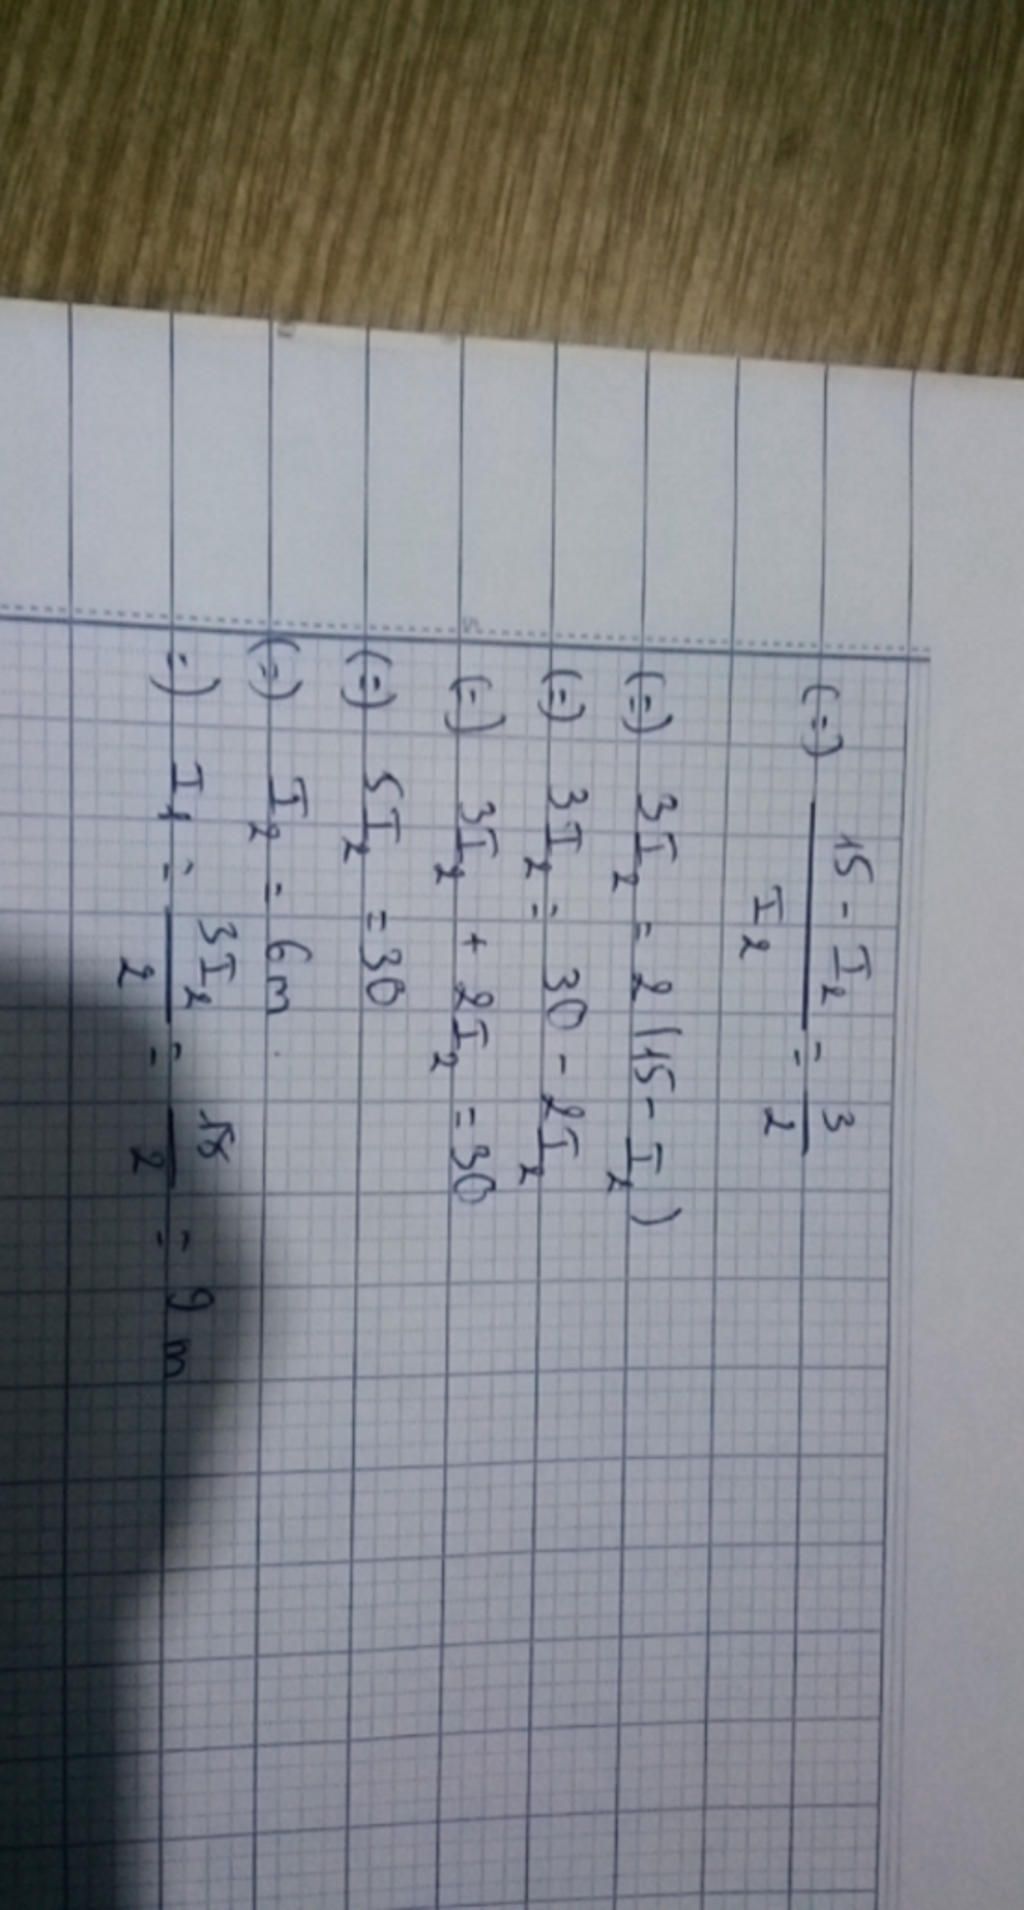 (=) 15 - I₂ / I₂ = 3/2
(=) 3I₂ = 2(15 - I₂)
(=) 3I₂ = 30 - 2I₂
(=) 3I₂ + 2I₂ = 30
(=) 5I₂ = 30
(=) I₂ = 6m
=) I₁ = 3I₂/2 = 18/2 = 9m